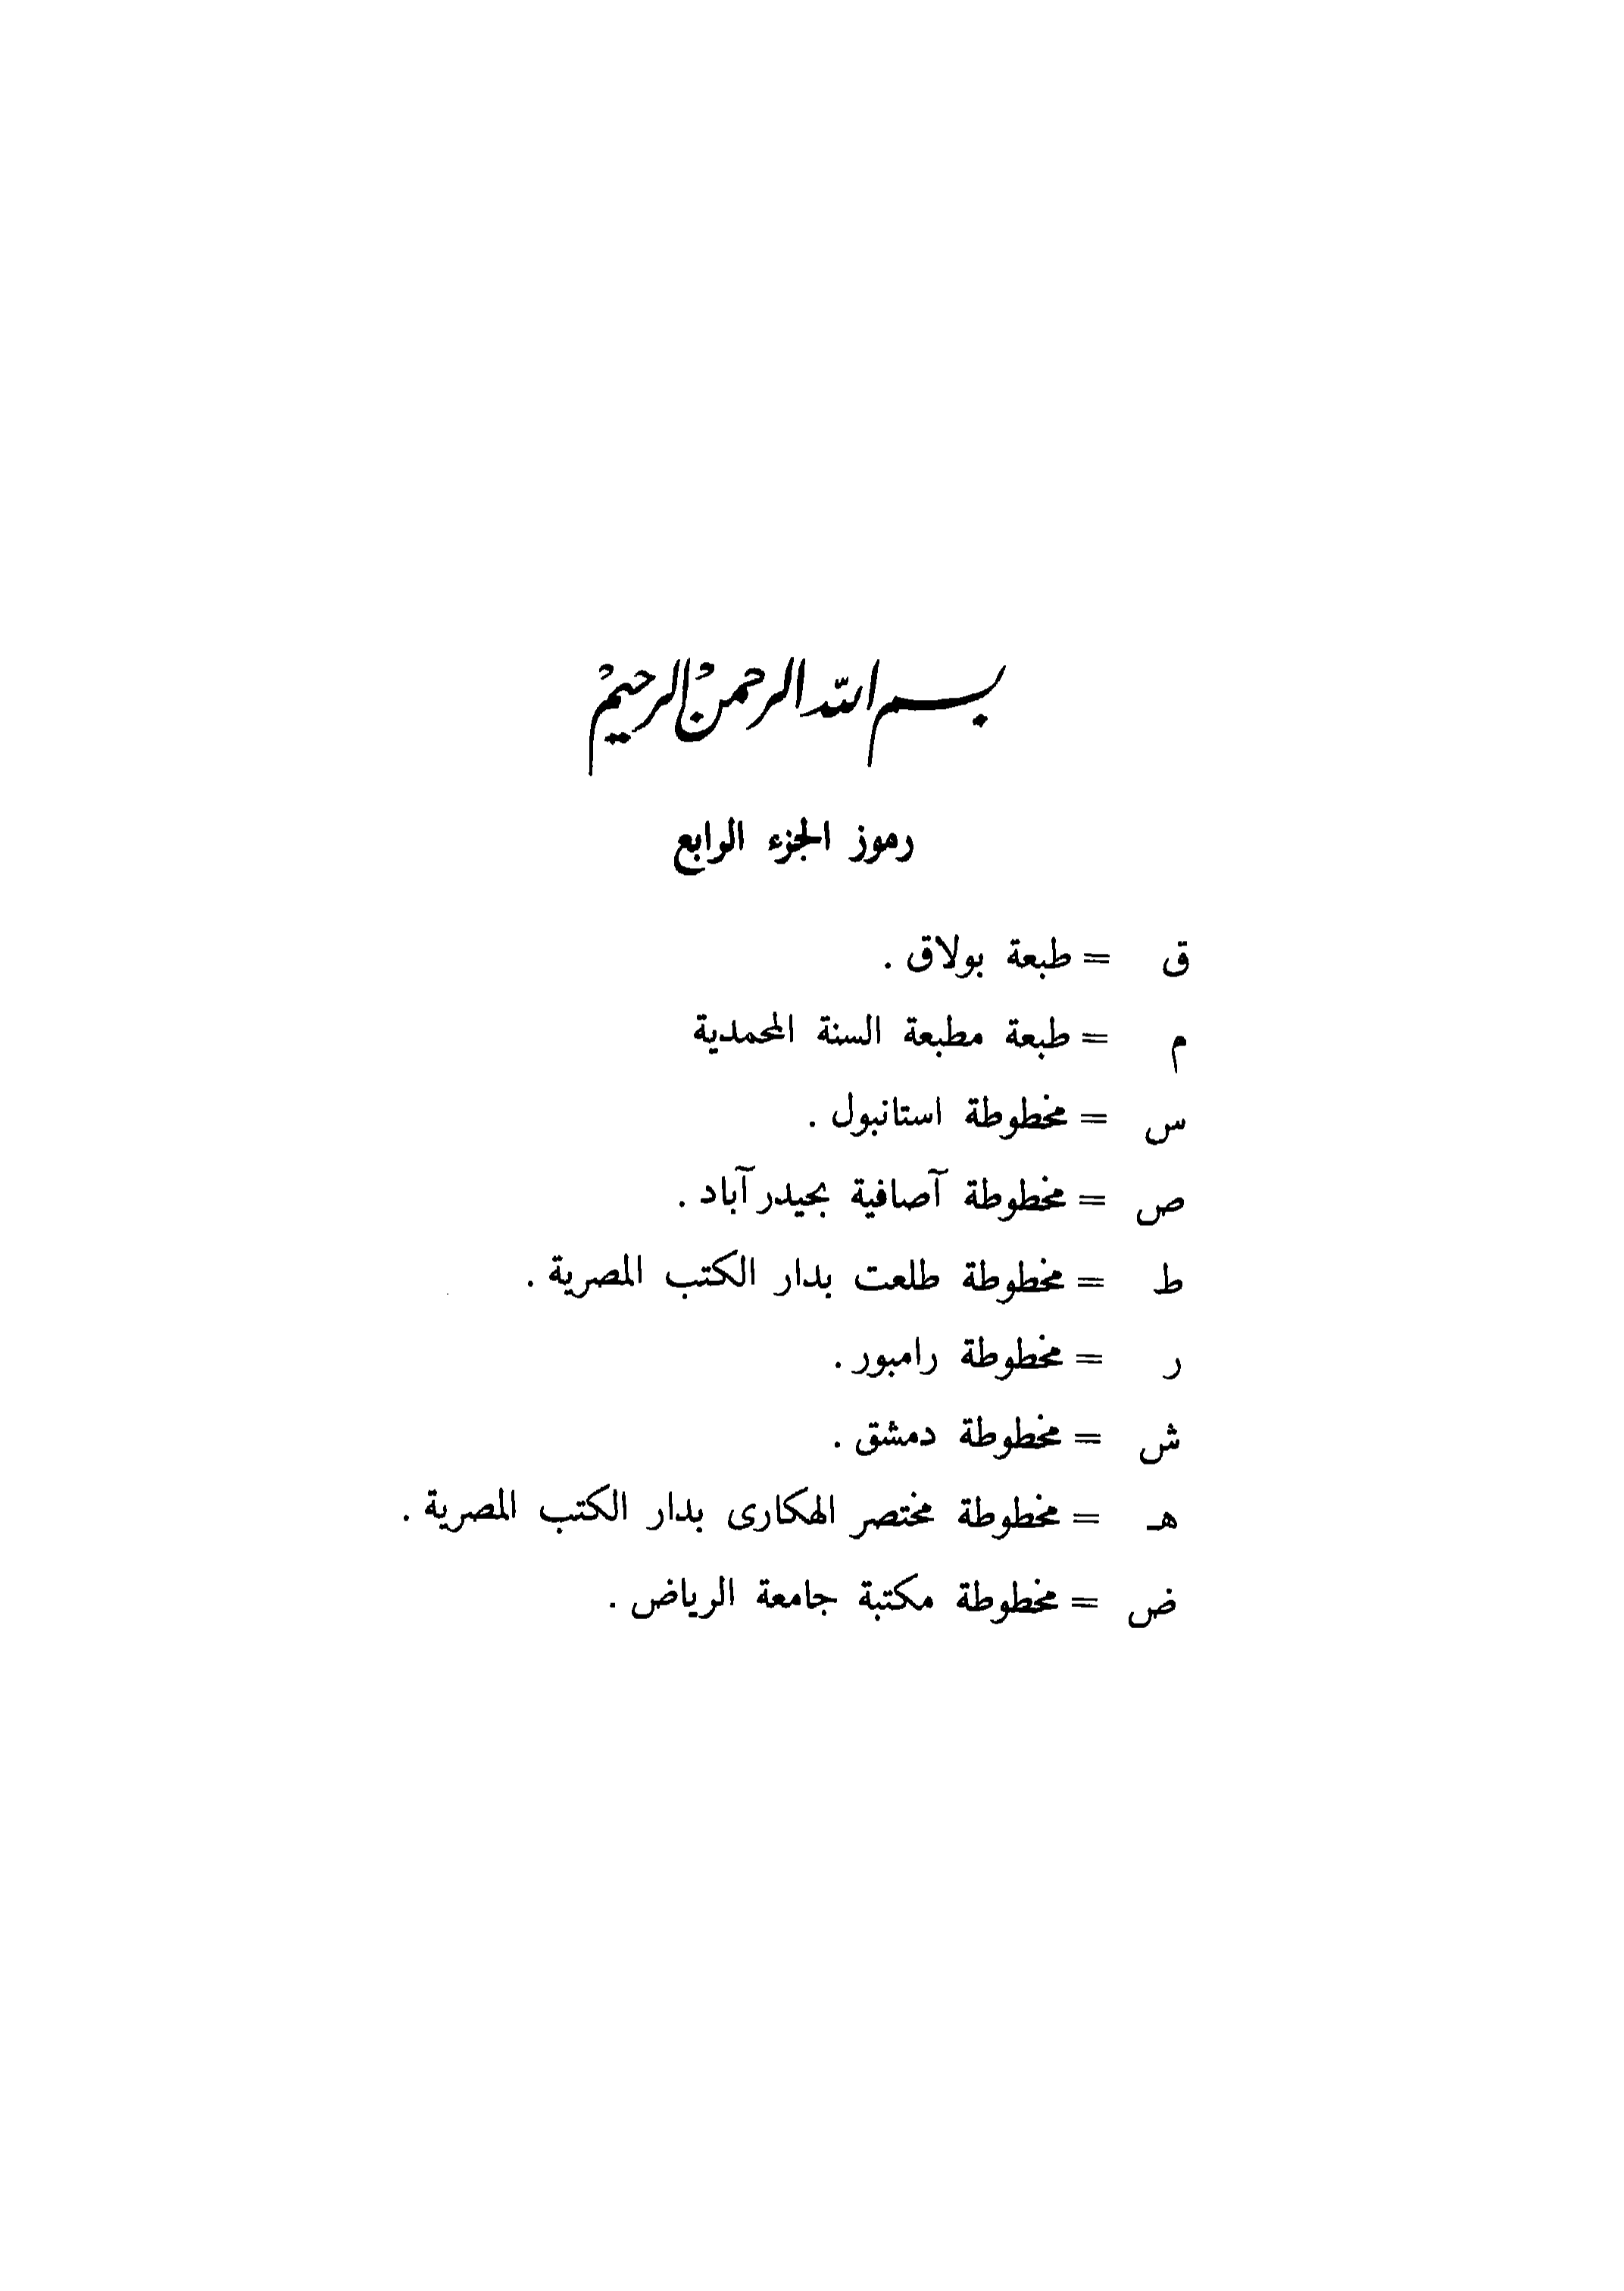 بسم الله الرحمن الرحيم
رموز الجزء الرابع
ق = طبعة بولاق .
م = طبعة مطبعة السنة المحمدية
س = مخطوطة استانبول .
ص = مخطوطة آصافية بحيدر آباد .
ط = مخطوطة طلعت بدار الكتب المصرية .
ر = مخطوطة رامبور .
ش = مخطوطة دمشق .
هـ = مخطوطة مختصر الهكارى بدار الكتب المصرية .
ض = مخطوطة مكتبة جامعة الرياض .